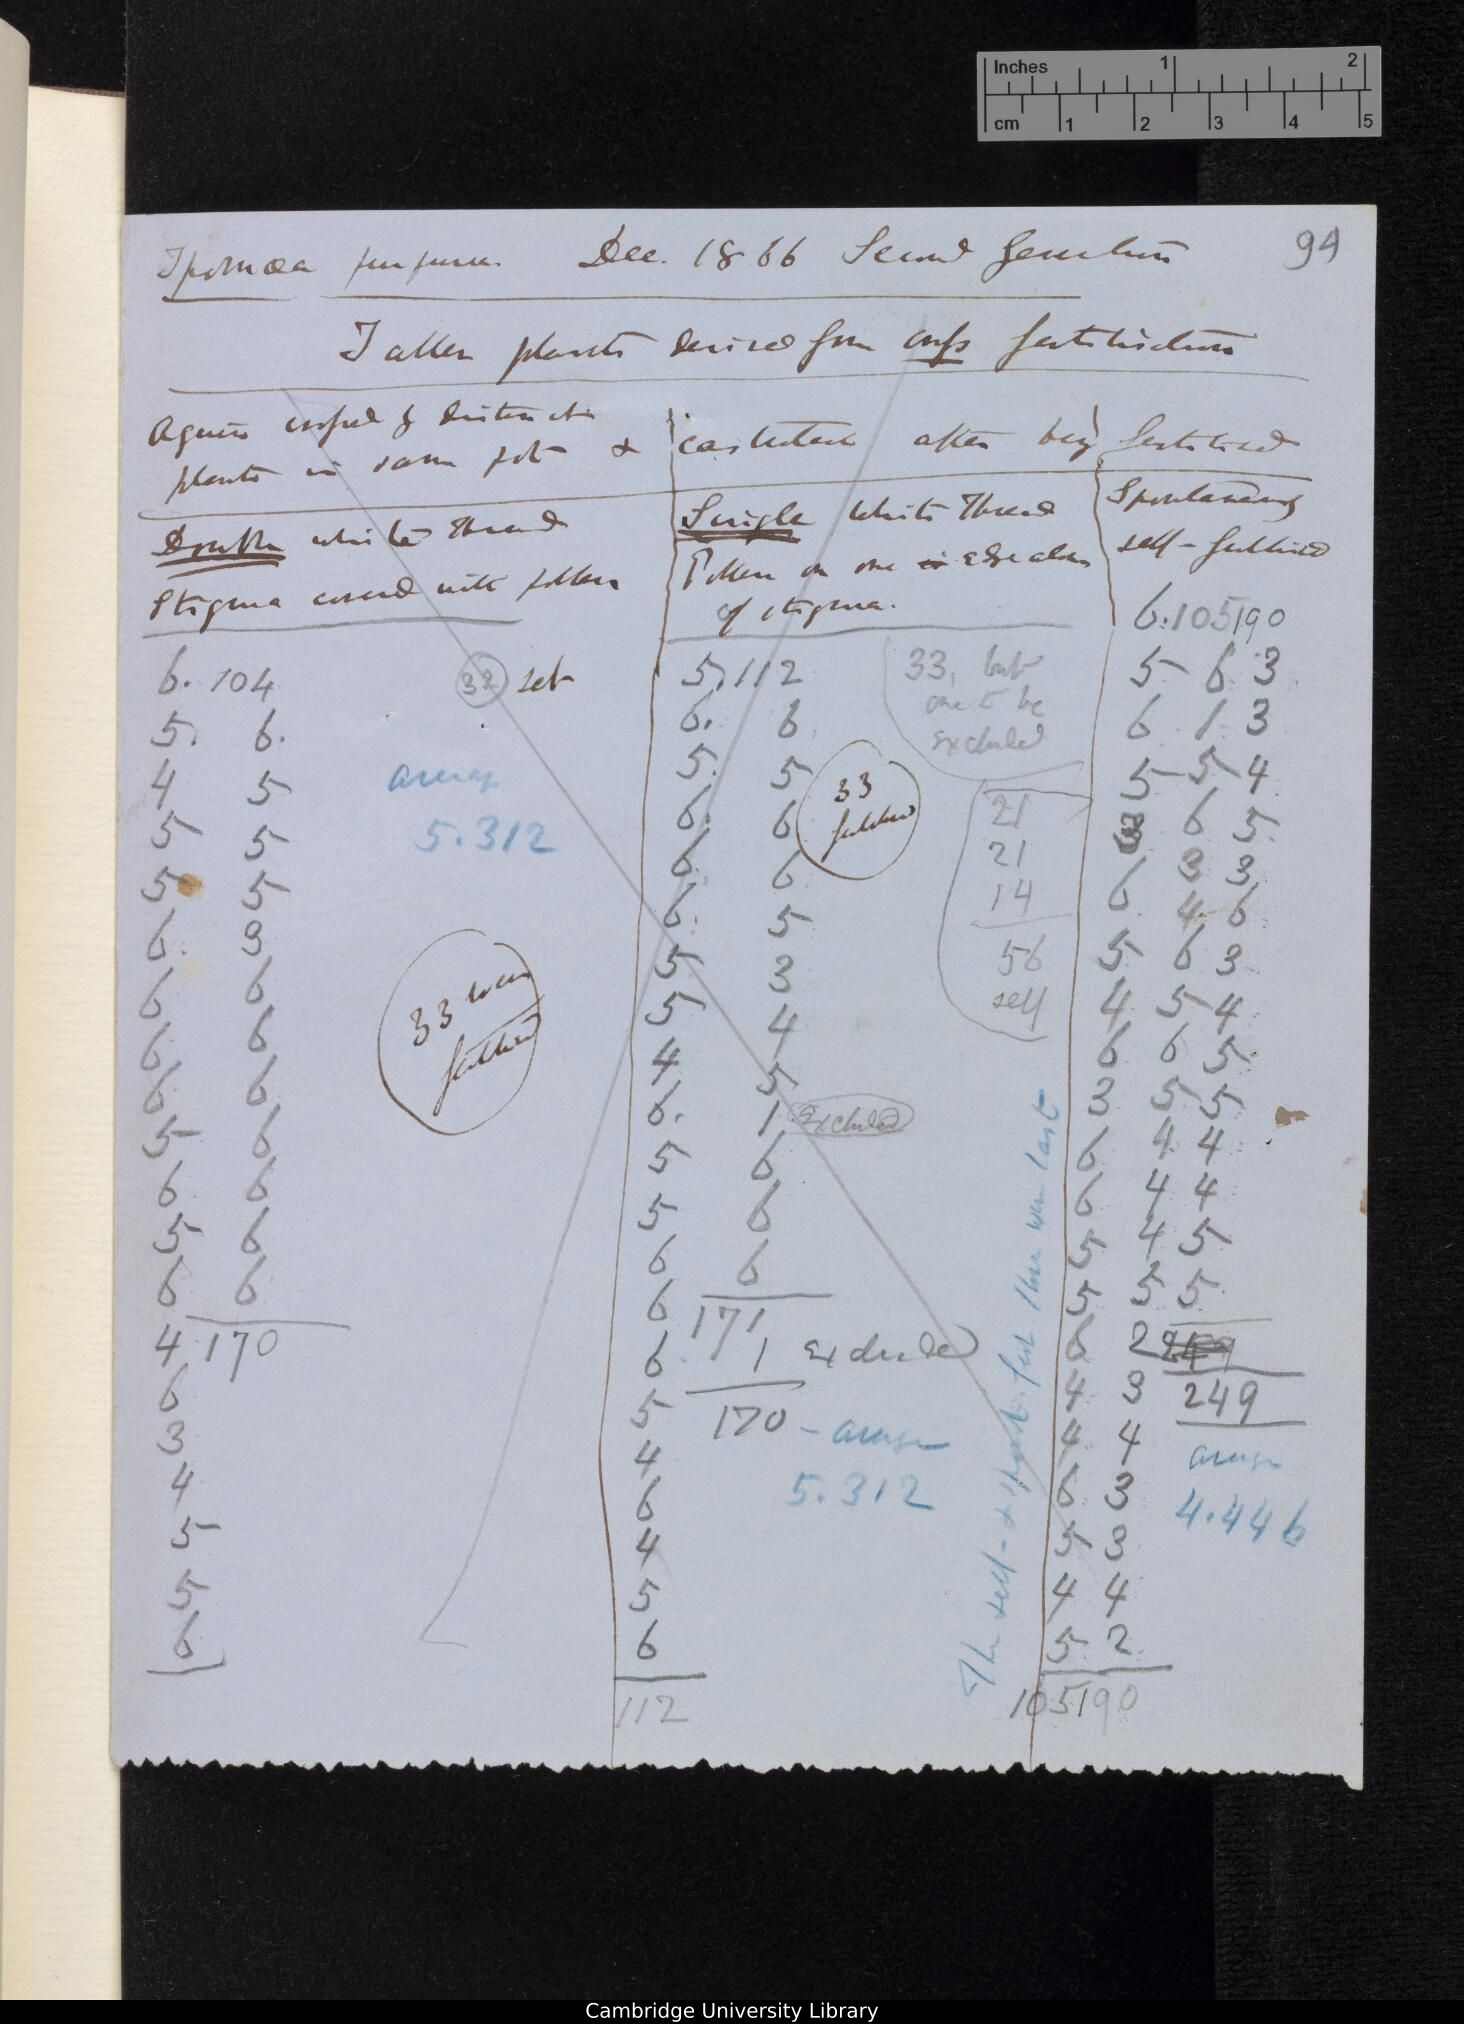 Inches 1 2
cm 1 2 3 4 5
94
Ipomœa purpurea Dec. 1866 Second Generation
Taller plants derived from cross fertilisation
Again crossed by distinct
plants in same pot & castrated after being fertilised
Double white thread
Stigma covered with pollen
6. 104
32 set
5. 6.
4 5
5 5
5 5
6. 3
6 6
6. 6
6 6
5 6
6 6
5 6
6 6
4 170
6
3
4
5
5
6
average
5.312
33 were
fertilised
Single White Thread
Pollen on one edge alone
of stigma.
5. 112
6. 6
5. 5
6. 6
6. 6
6. 5
5 3
5 4
4 5
6. 1 Excluded
5 6
5 6
6 6
6 171
6 1 excluded
5 170 - average
4 5.312
6
4
5
6
112
33, but
one to be
excluded
33
fertilised
21
21
14
56
self
The self- & spont. fert. these were last
Spontaneously
self-fertilised
6. 105 190
5 6 3
6 1 3
5 5 4
3 6 5
6 3 3
6 4 6
5 6 3
4 5 4
6 6 5
3 5 5
6 4 4
6 4 4
5 4 5
5 5 5
6 2 249
4 3 249
4 4
6 3
5 3
4 4
5 2
105 190
average
4.446
Cambridge University Library